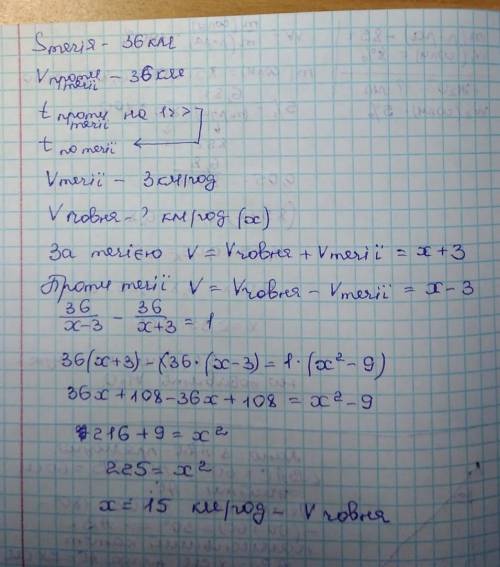 Sтечія - 36 км
Vпроти течії - 36 км
t проти течії на 1 >
t по течії
Vтечії - 3 км/год
Vчовня - ? км/год (x)
За течією V = Vчовня + Vтечії = x + 3
Проти течії V = Vчовня - Vтечії = x - 3
36/(x-3) - 36/(x+3) = 1
36(x+3) - (36·(x-3) = 1·(x² - 9)
36x + 108 - 36x + 108 = x² - 9
216 + 9 = x²
225 = x²
x = 15 км/год - Vчовня